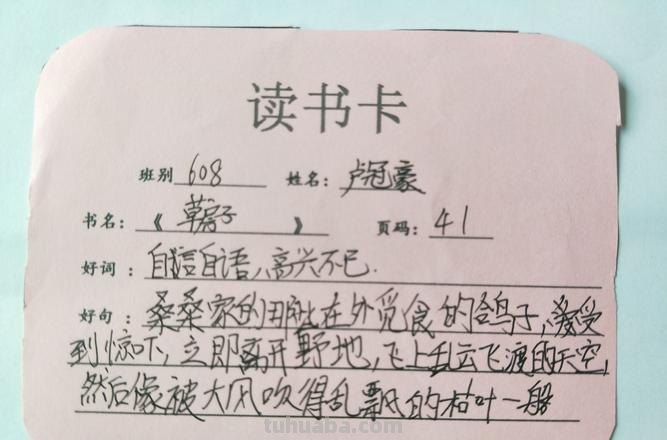 读书卡
班别 608 姓名：卢冠豪
书名：《草房子》 页码：41
好词：自言自语、高兴不已.
好句：桑桑家的那些在外觅食的鸽子，受
到惊吓，立即离开野地，飞上乱云飞渡的天空，
然后像被大风吹得乱飘的枯叶一般
tuhuaba.com